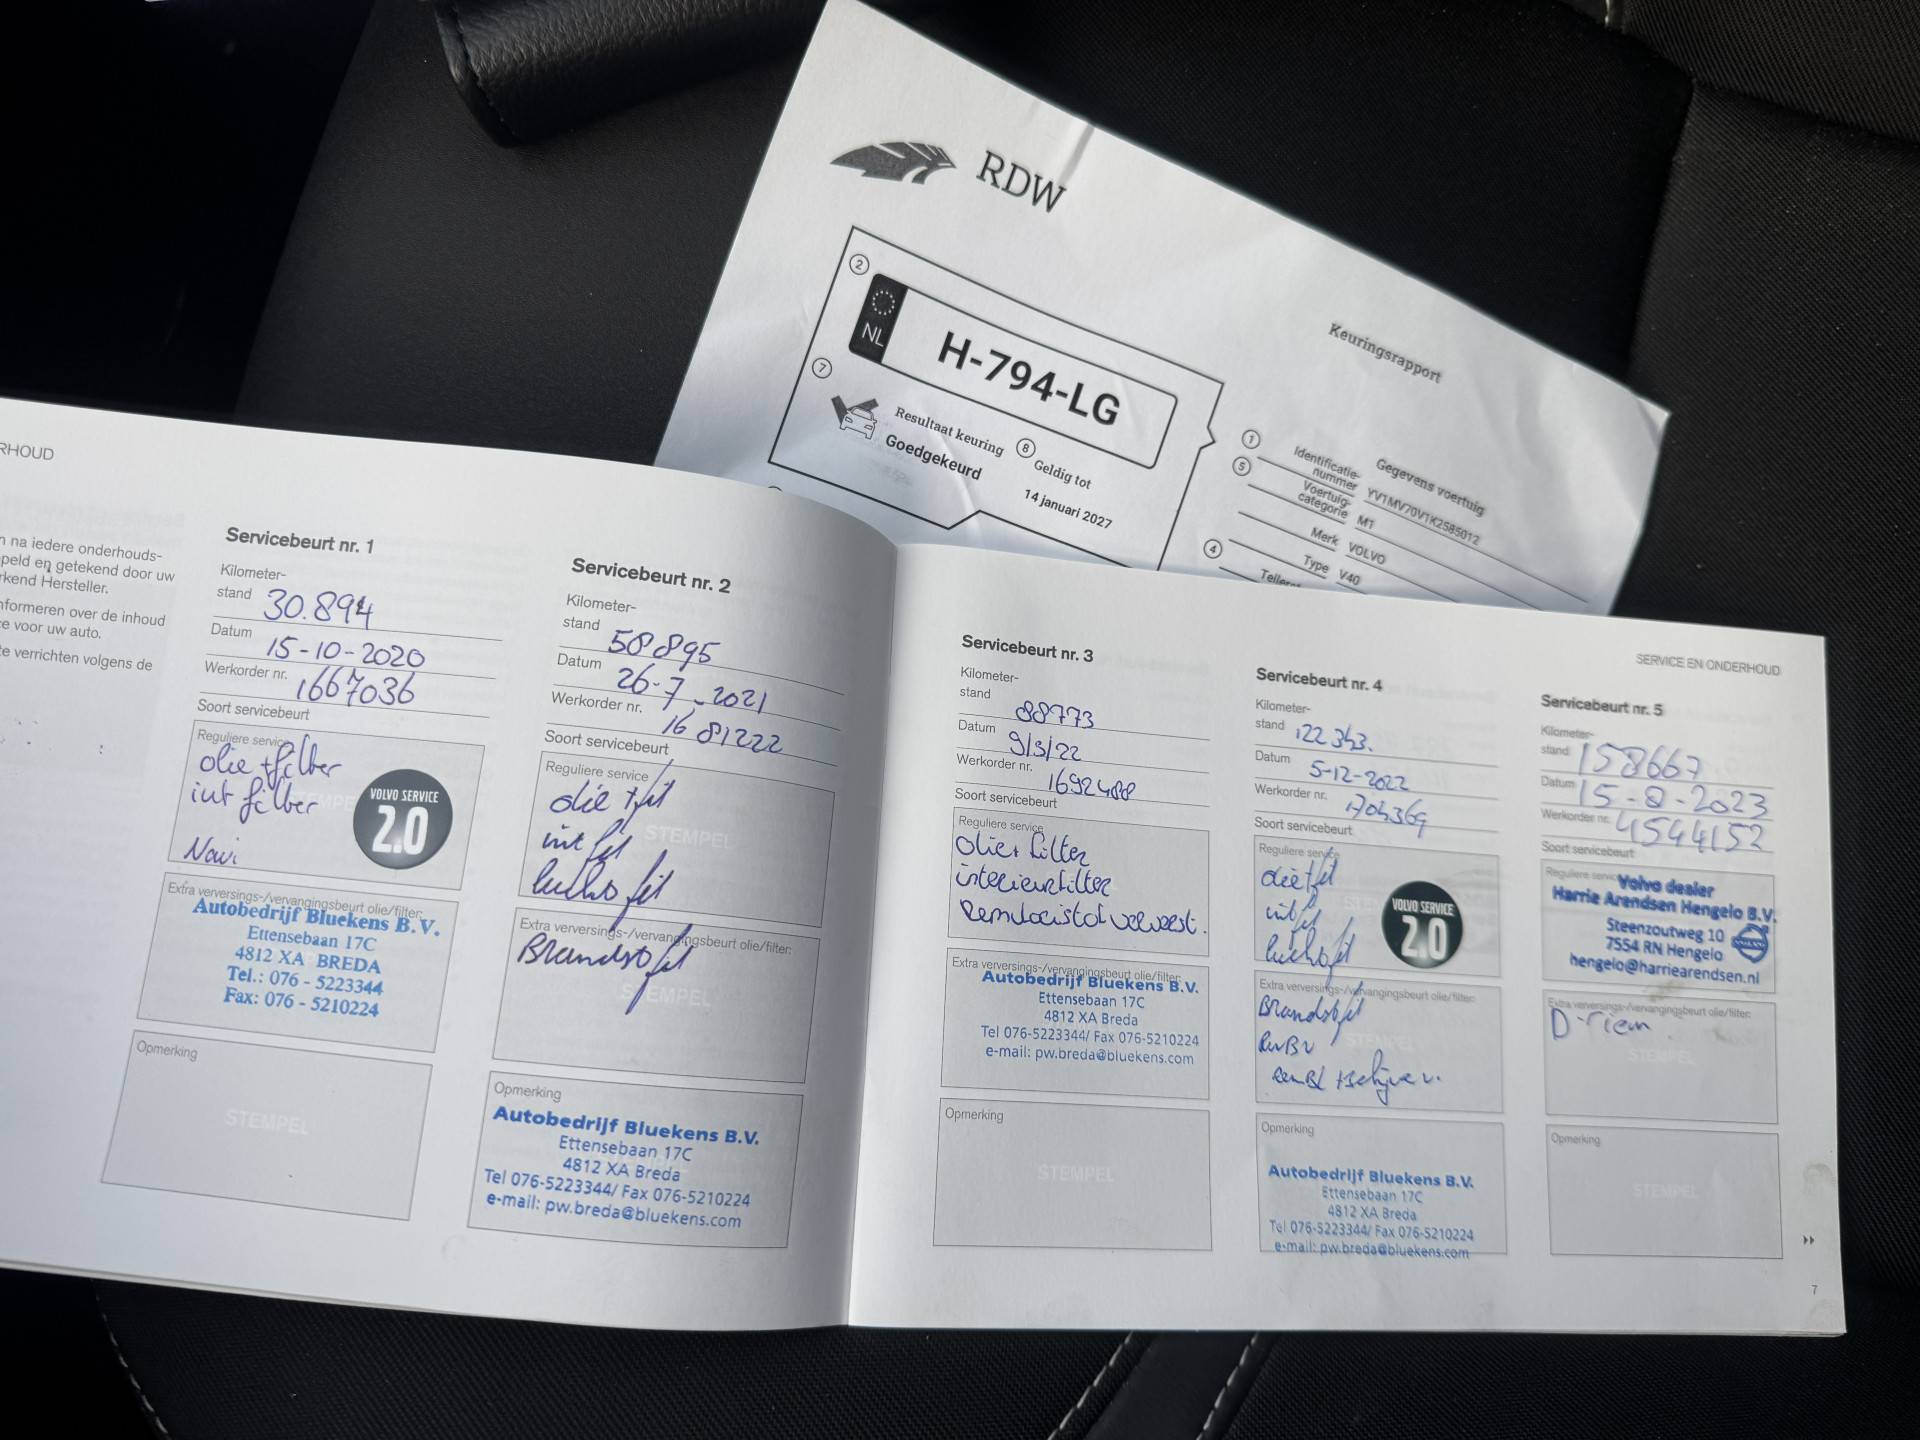 RDW
Keuringsrapport
2
NL
H-794-LG
7
Resultaat keuring
Goedgekeurd
8
Geldig tot
14 januari 2027
1
Gegevens voertuig
Identificatie-
nummer YV1MV70V1K2585012
5
Voertuig-
categorie M1
Merk VOLVO
4
Type V40
RHOUD
n na iedere onderhouds-
peld en getekend door uw
rkend Hersteller.
nformeren over de inhoud
ce voor uw auto.
te verrichten volgens de
Servicebeurt nr. 1
Kilometer-
stand 30.894
Datum 15-10-2020
Werkorder nr. 1667036
Soort servicebeurt
Reguliere service
olie + filter
int filter
Navi
STEMPEL
VOLVO SERVICE
2.0
Extra verversings-/vervangingsbeurt olie/filter:
Autobedrijf Bluekens B.V.
Ettensebaan 17C
4812 XA BREDA
Tel.: 076 - 5223344
Fax: 076 - 5210224
Opmerking
STEMPEL
Servicebeurt nr. 2
Kilometer-
stand 58895
Datum 26-7-2021
Werkorder nr. 1681222
Soort servicebeurt
Reguliere service
olie + fil
int fil
luchtfil
STEMPEL
Extra verversings-/vervangingsbeurt olie/filter:
Brandstfil
STEMPEL
Opmerking
Autobedrijf Bluekens B.V.
Ettensebaan 17C
4812 XA Breda
Tel 076-5223344/ Fax 076-5210224
e-mail: pw.breda@bluekens.com
SERVICE EN ONDERHOUD
Servicebeurt nr. 3
Kilometer-
stand 88773
Datum 9/3/22
Werkorder nr. 1692488
Soort servicebeurt
Reguliere service
olie+ filter
interieurfilter
Remvloeistof ververst.
Extra verversings-/vervangingsbeurt olie/filter:
Autobedrijf Bluekens B.V.
Ettensebaan 17C
4812 XA Breda
Tel 076-5223344/ Fax 076-5210224
e-mail: pw.breda@bluekens.com
Opmerking
STEMPEL
Servicebeurt nr. 4
Kilometer-
stand 122343.
Datum 5-12-2022
Werkorder nr. 1704369
Soort servicebeurt
Reguliere service
olie+fil
int fil
luchtfil
VOLVO SERVICE
2.0
Extra verversings-/vervangingsbeurt olie/filter:
Brandstfil
STEMPEL
Opmerking
Autobedrijf Bluekens B.V.
Ettensebaan 17C
4812 XA Breda
Tel 076-5223344/ Fax 076-5210224
e-mail: pw.breda@bluekens.com
Servicebeurt nr. 5
Kilometer-
stand 158667
Datum 15-8-2023
Werkorder nr. 4544152
Soort servicebeurt
Reguliere service
Volvo dealer
Harrie Arendsen Hengelo B.V.
Steenzoutweg 10
7554 RN Hengelo
hengelo@harriearendsen.nl
VOLVO
Extra verversings-/vervangingsbeurt olie/filter:
D-riem
STEMPEL
Opmerking
STEMPEL
7